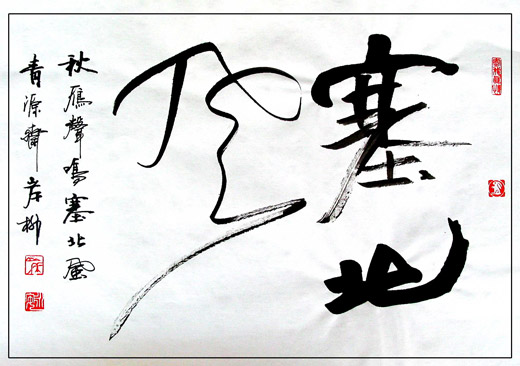 塞北
风
秋雁聲鳴塞北風
青源齋岸柳